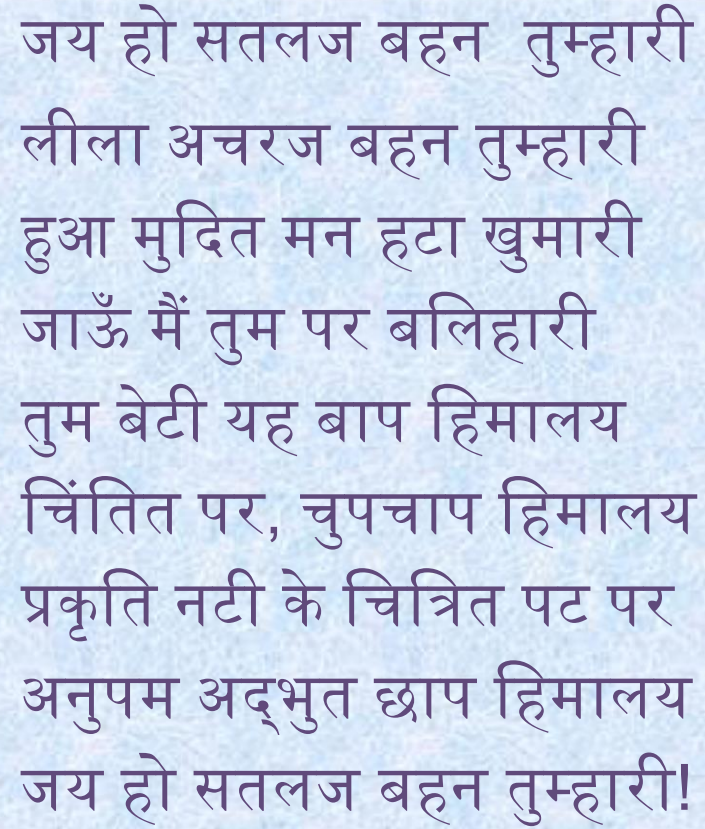 जय हो सतलज बहन तुम्हारी
लीला अचरज बहन तुम्हारी
हुआ मुदित मन हटा खुमारी
जाऊँ मैं तुम पर बलिहारी
तुम बेटी यह बाप हिमालय
चिंतित पर, चुपचाप हिमालय
प्रकृति नटी के चित्रित पट पर
अनुपम अद्‌भुत छाप हिमालय
जय हो सतलज बहन तुम्हारी!